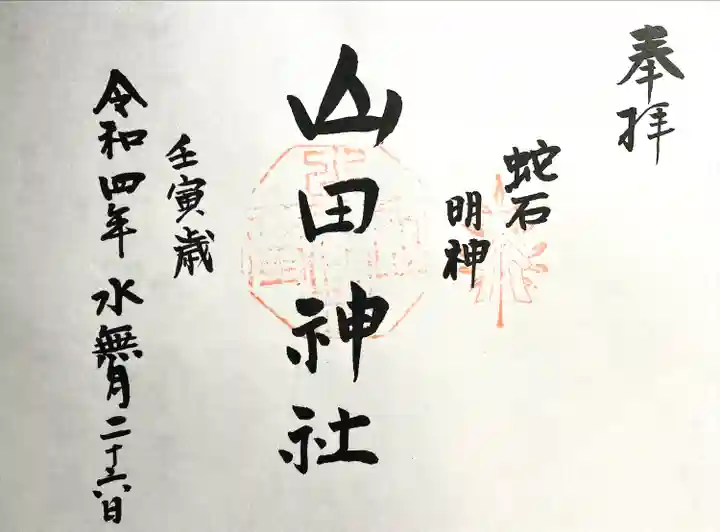 奉拝
蛇石
明神
山田神社
壬寅歳
令和四年 水無月二十六日